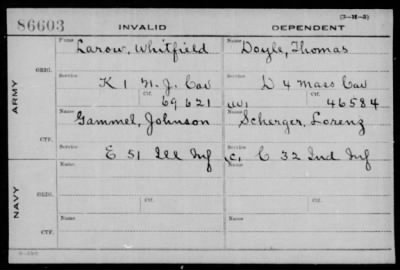 86603 INVALID DEPENDENT (3-H-3)
ARMY
ORIG.
Name Larow, Whitfield Name Doyle, Thomas
Service K 1 N. J. Cav Service D 4 Mass Cav
Ctf. 69621 W, Ctf. 46584
CTF.
Name Gammel, Johnson Name Scherger, Lorenz
Service E 51 Ill Inf Service C, C 32 Ind Inf
NAVY
ORIG.
Name Name
Service Ctf. Service Ctf.
CTF.
Name Name
Service Service